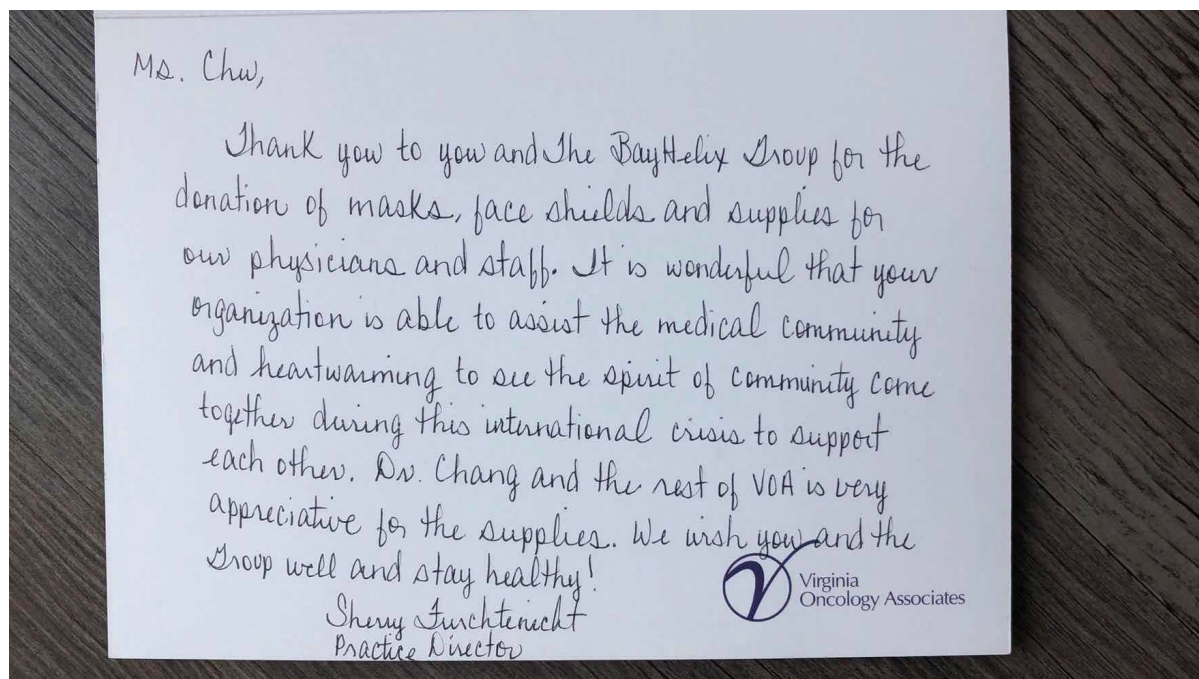 Ms. Chu,
Thank you to you and The BayHelix Group for the
donation of masks, face shields and supplies for
our physicians and staff. It is wonderful that your
organization is able to assist the medical community
and heartwarming to see the spirit of community come
together during this international crisis to support
each other. Dr. Chang and the rest of VOA is very
appreciative for the supplies. We wish you and the
Group well and stay healthy!
Sherry Furchtenicht
Practice Director
Virginia
Oncology Associates